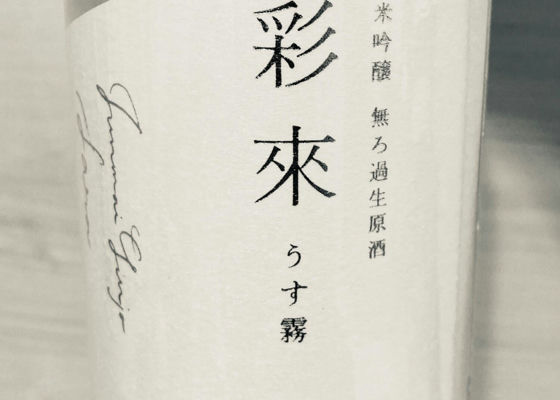 米吟醸 無ろ過生原酒
彩來
うす霧
Junmai Ginjo